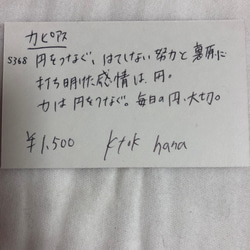 カピアス
S368 円をつなぐ、はてしない努力と裏原に
打ち明けた感情は、円。
力は円をつなぐ。毎日の円、大切。
¥1,500 ktok hana